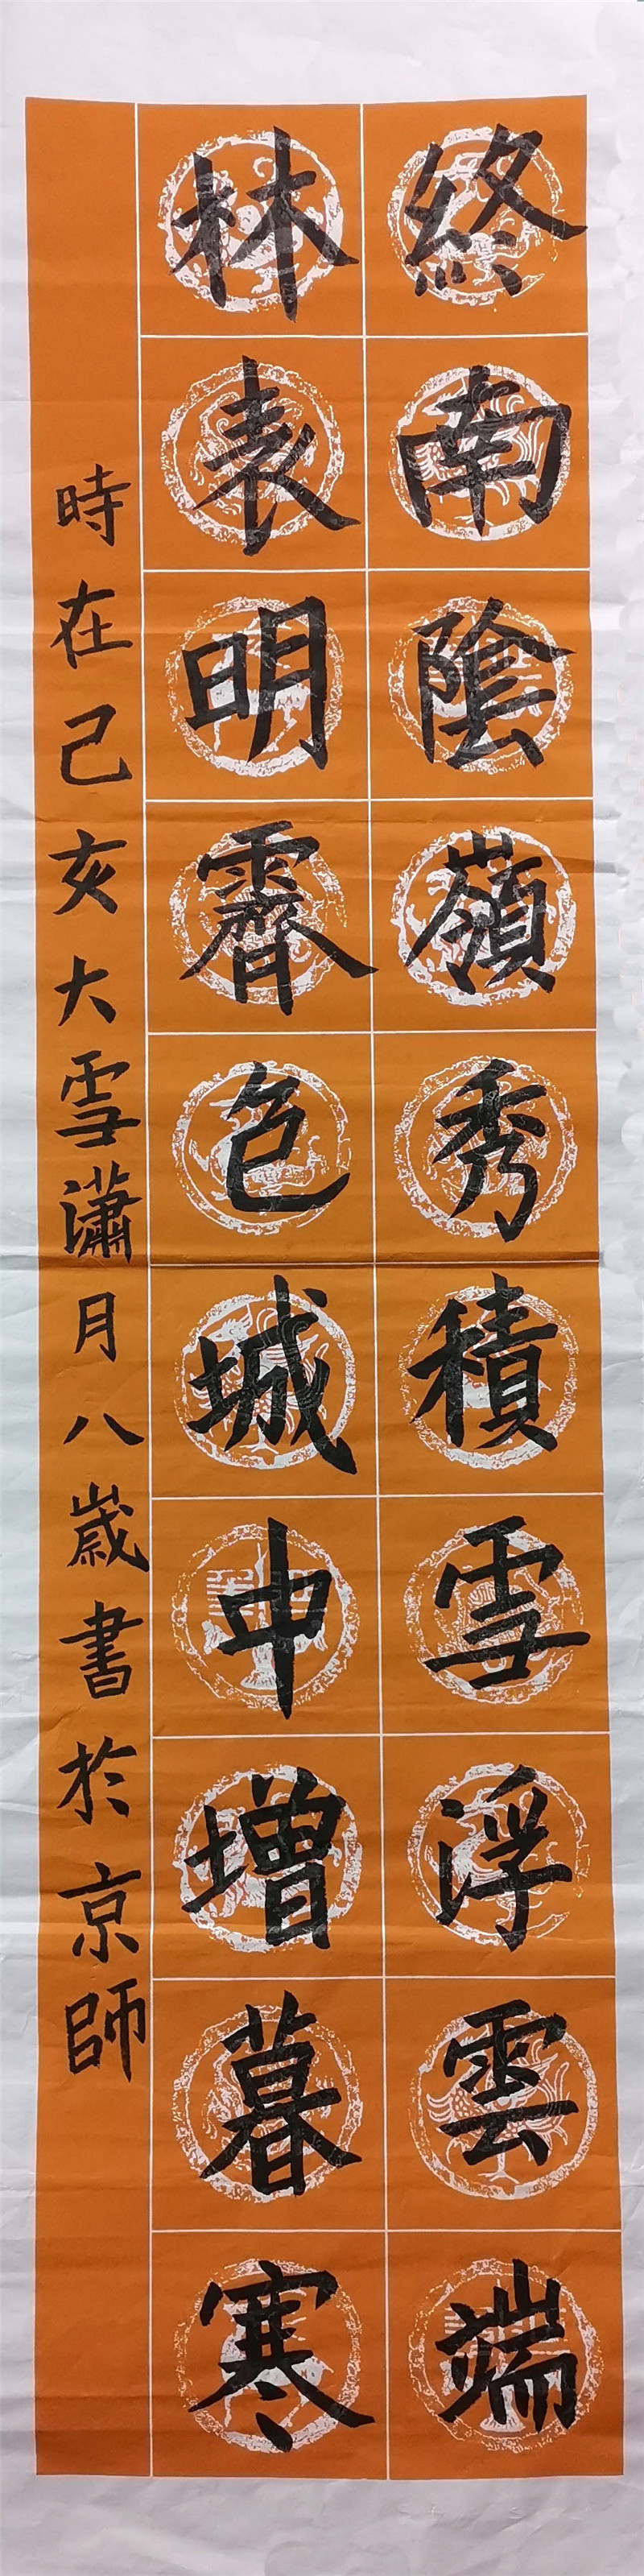 終南陰嶺秀積雪浮雲端
林表明霽色城中增暮寒
時在己亥大雪瀟月八歲書於京師